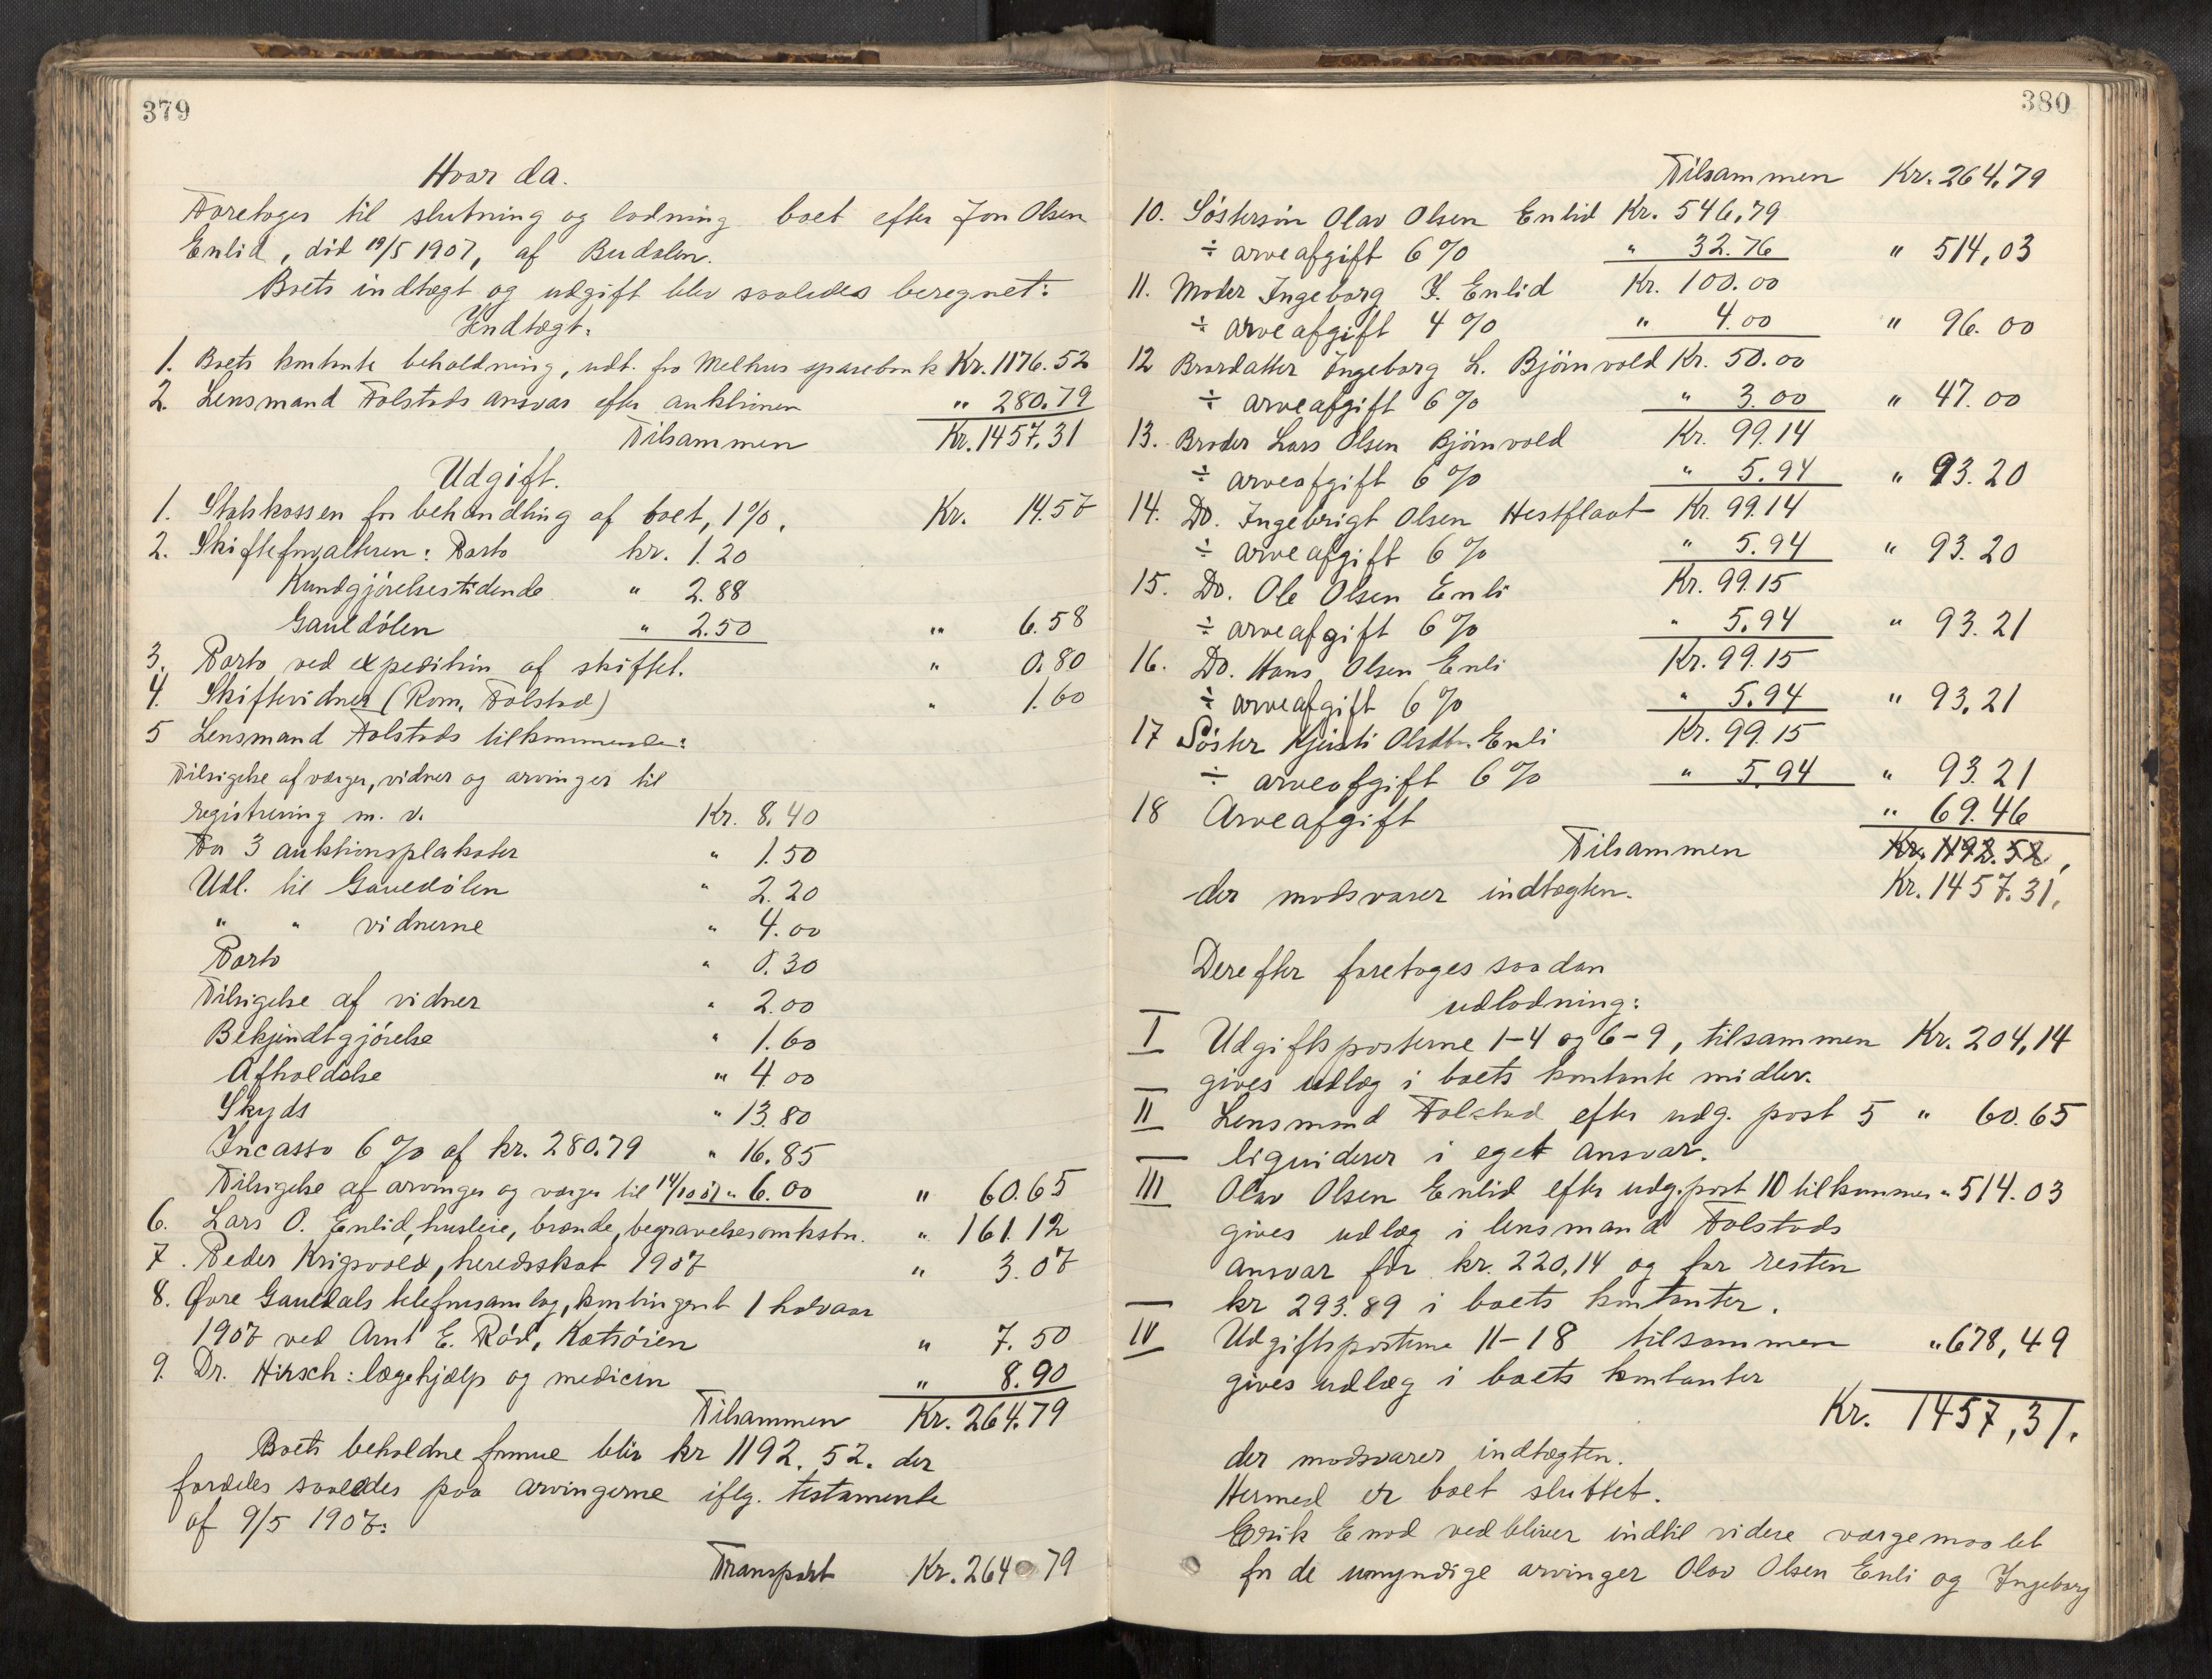 379
Hvar da.
Foretoges til slutning og lodning boet efter Jon Olsen
Enlid, död 19/5 1907, af Budalen.
Boets indtægt og udgift blev saaledes beregnet:
Indtægt:
1. Boets kontante beholdning, udt. fra Melhus sparebank Kr. 1176.52
2. Lensmand Folstads ansvar efter auktionen " 280.79
Tilsammen Kr. 1457.31
Udgift.
1. Statskassen for behandling af boet, 1%. Kr. 14.57
2. Skifteforvalteren: Porto kr. 1.20
Kundgjörelsestidende " 2.88
Gauldölen " 2.50 " 6.58
3. Porto ved expedition af skiftet. " 0.80
4. Skiftevidner (Rom, Folstad) " 1.60
5 Lensmand Folstads tilkommende:
Tilsigelse af værger, vidner og arvinger til
registrering m. v. Kr. 8.40
For 3 auktionsplakater " 1.50
Udl. til Gauldölen " 2.20
" " vidnerne " 4.00
Porto " 0.30
Tilsigelse af vidner " 2.00
Bekjendtgjörelse " 1.60
Afholdelse " 4.00
Skyds " 13.80
Incasso 6% af kr. 280.79 " 16.85
Tilsigelse af arvinger og værger til 14/10 07 " 6.00 " 60.65
6. Lars O. Enlid, husleie, brænde, begravelsesomkstn. " 161.12
7. Peder Krigsvold, heredsskat 1907 " 3.07
8. Övre Gauldals telefonsamlag, kontingent 1 halvaar
1907 ved Arnt E. Röd, Kotsöien " 7.50
9. Dr. Hirsch: lægehjælp og medicin " 8.90
Tilsammen Kr. 264.79
Boets beholdne formue blir kr 1192.52. der
fordeles saaledes paa arvingerne iflg. testamente
af 9/5 1907:
Transport Kr. 264 79
380
Tilsammen Kr. 264.79
10. Söstersön Olav Olsen Enlid Kr. 546.79
÷ arveafgift 6% " 32.76 " 514,03
11. Moder Ingeborg J. Enlid Kr. 100.00
÷ arveafgift 4% " 4.00 " 96.00
12 Brordatter Ingeborg L. Björnvold Kr. 50.00
÷ arveafgift 6% " 3.00 " 47.00
13. Broder Lars Olsen Björnvold Kr. 99.14
÷ arveafgift 6% " 5.94 " 93.20
14. Do. Ingebrigt Olsen Hestflaat Kr. 99.14
÷ arveafgift 6% " 5.94 " 93.20
15. Do. Ole Olsen Enli Kr. 99.15
÷ arveafgift 6% " 5.94 " 93.21
16. Do. Hans Olsen Enli Kr. 99.15
÷ arveafgift 6% " 5.94 " 93.21
17 Söster Kjersti Olsdtr. Enli Kr. 99.15
÷ arveafgift 6% " 5.94 " 93.21
18 Arveafgift " 69.46
Tilsammen Kr. 1192.52.
der modsvarer indtægten. Kr. 1457.31.
Derefter foretoges saadan
udlodning:
I Udgiftsposterne 1-4 og 6-9, tilsammen Kr. 204,14
gives udlæg i boets kontante midler.
II Lensmand Folstad efter udg. post 5 " 60.65
liquiderer i eget ansvar.
III Olav Olsen Enlid efter udg.post 10 tilkommer " 514.03
gives udlæg i lensmand Folstads
ansvar for kr. 220,14 og for resten
kr 293.89 i boets kontanter.
IV Udgiftsposterne 11-18 tilsammen " 678,49
gives udlæg i boets kontanter
Kr. 1457,31.
der modsvarer indtægten.
Hermed er boet sluttet.
Erik Enod vedbliver indtil videre værgemaalet
for de umyndige arvinger Olav Olsen Enli og Ingeborg